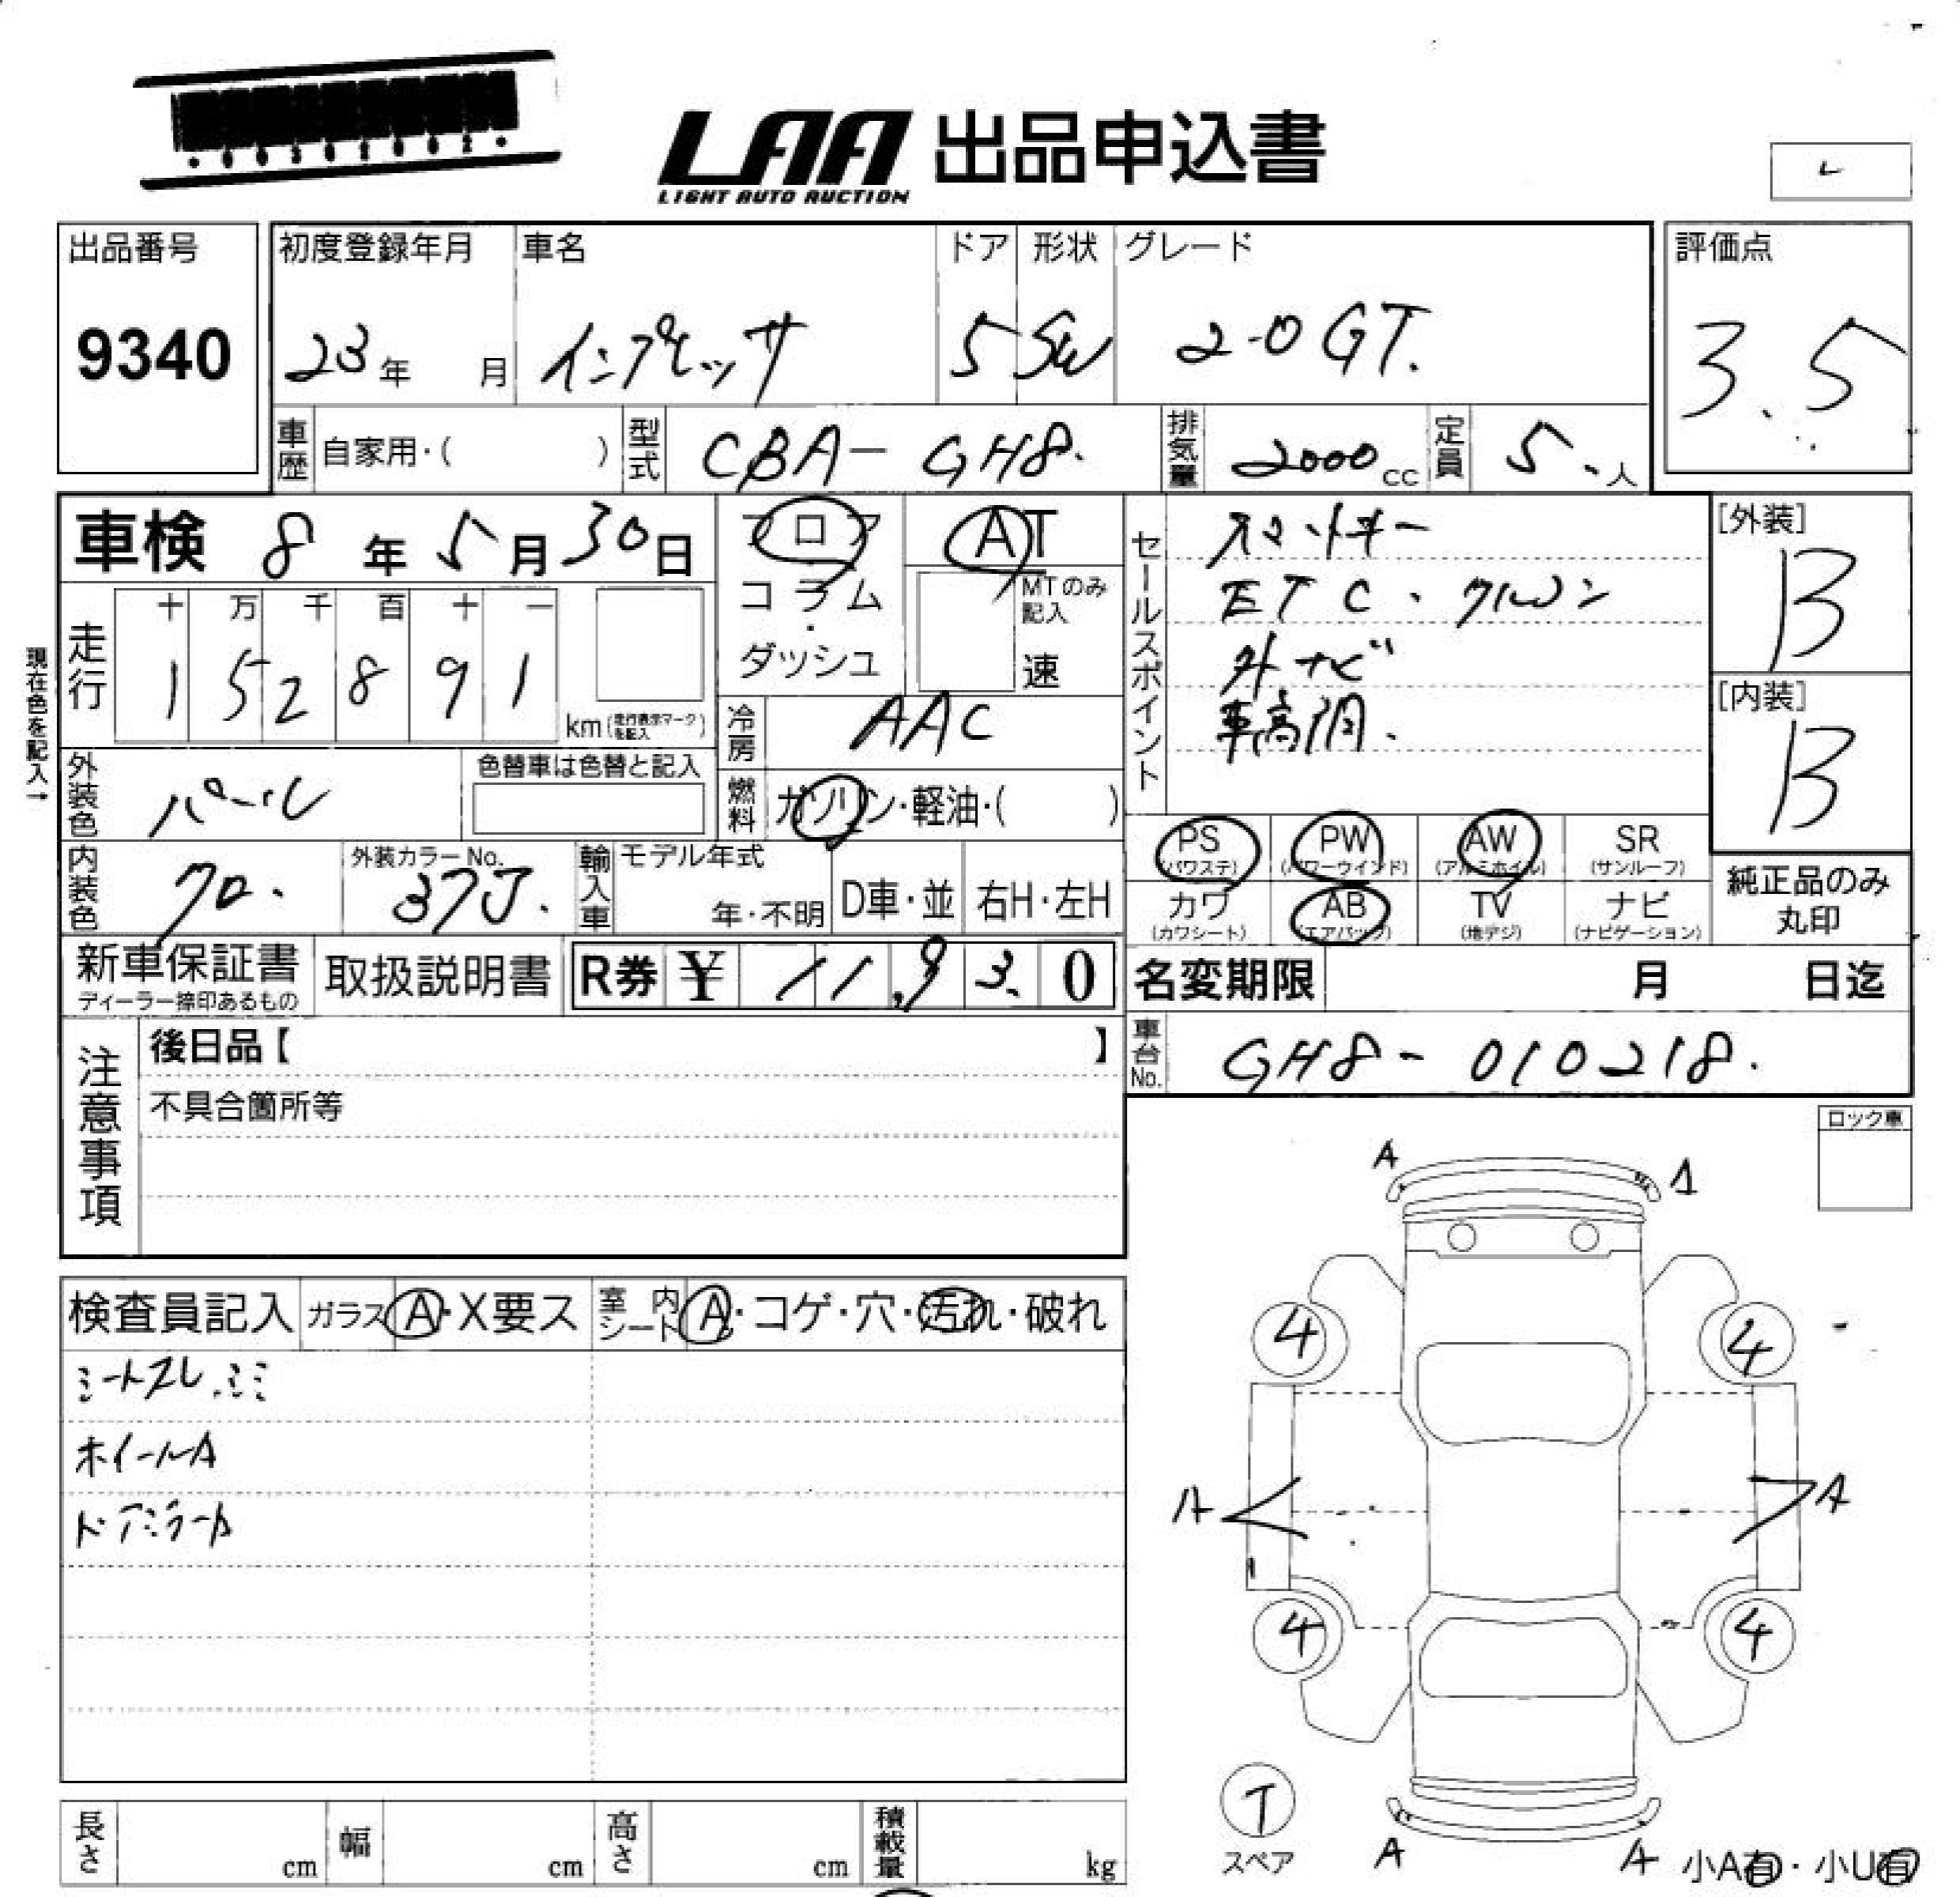 LAA 出品申込書
LIGHT AUTO AUCTION
出品番号
9340
初度登録年月
23年 月
車名
インプレッサ
ドア
5
形状
SW
グレード
2.0GT.
評価点
3.5
車歴 自家用・( )
型式 CBA-GH8.
排気量 2000cc
定員 5.人
車検 8年5月30日
フロア
コラム
・
ダッシュ
AT
MTのみ記入
速
セールスポイント
スマートキー
ETC・クルコン
外ナビ
車高調.
[外装]
B
[内装]
B
現在色を記入→
走行
十 万 千 百 十 一
1 5 2 8 9 1
km(走行表示マークを記入)
冷房 AAC
外装色 パール
色替車は色替と記入
燃料 ガソリン・軽油・( )
PS (パワステ)
PW (パワーウインド)
AW (アルミホイル)
SR (サンルーフ)
カワ (カワシート)
AB (エアバッグ)
TV (地デジ)
ナビ (ナビゲーション)
純正品のみ
丸印
内装色 クロ.
外装カラーNo. 37J.
輸入車 モデル年式
年・不明
D車・並
右H・左H
新車保証書
ディーラー捺印あるもの
取扱説明書
R券 ¥ 11,930
名変期限 月 日迄
注意事項
後日品【 】
不具合箇所等
車台No. GH8-010218.
ロック車
検査員記入 ガラス A・X要ス 室内シート A・コゲ・穴・汚れ・破れ
シートスレ.シミ
ホイールA
ドアミラーA
A A
4 4
A A
4 4
T
スペア
A A
小A有・小U有
長さ cm
幅 cm
高さ cm
積載量 kg